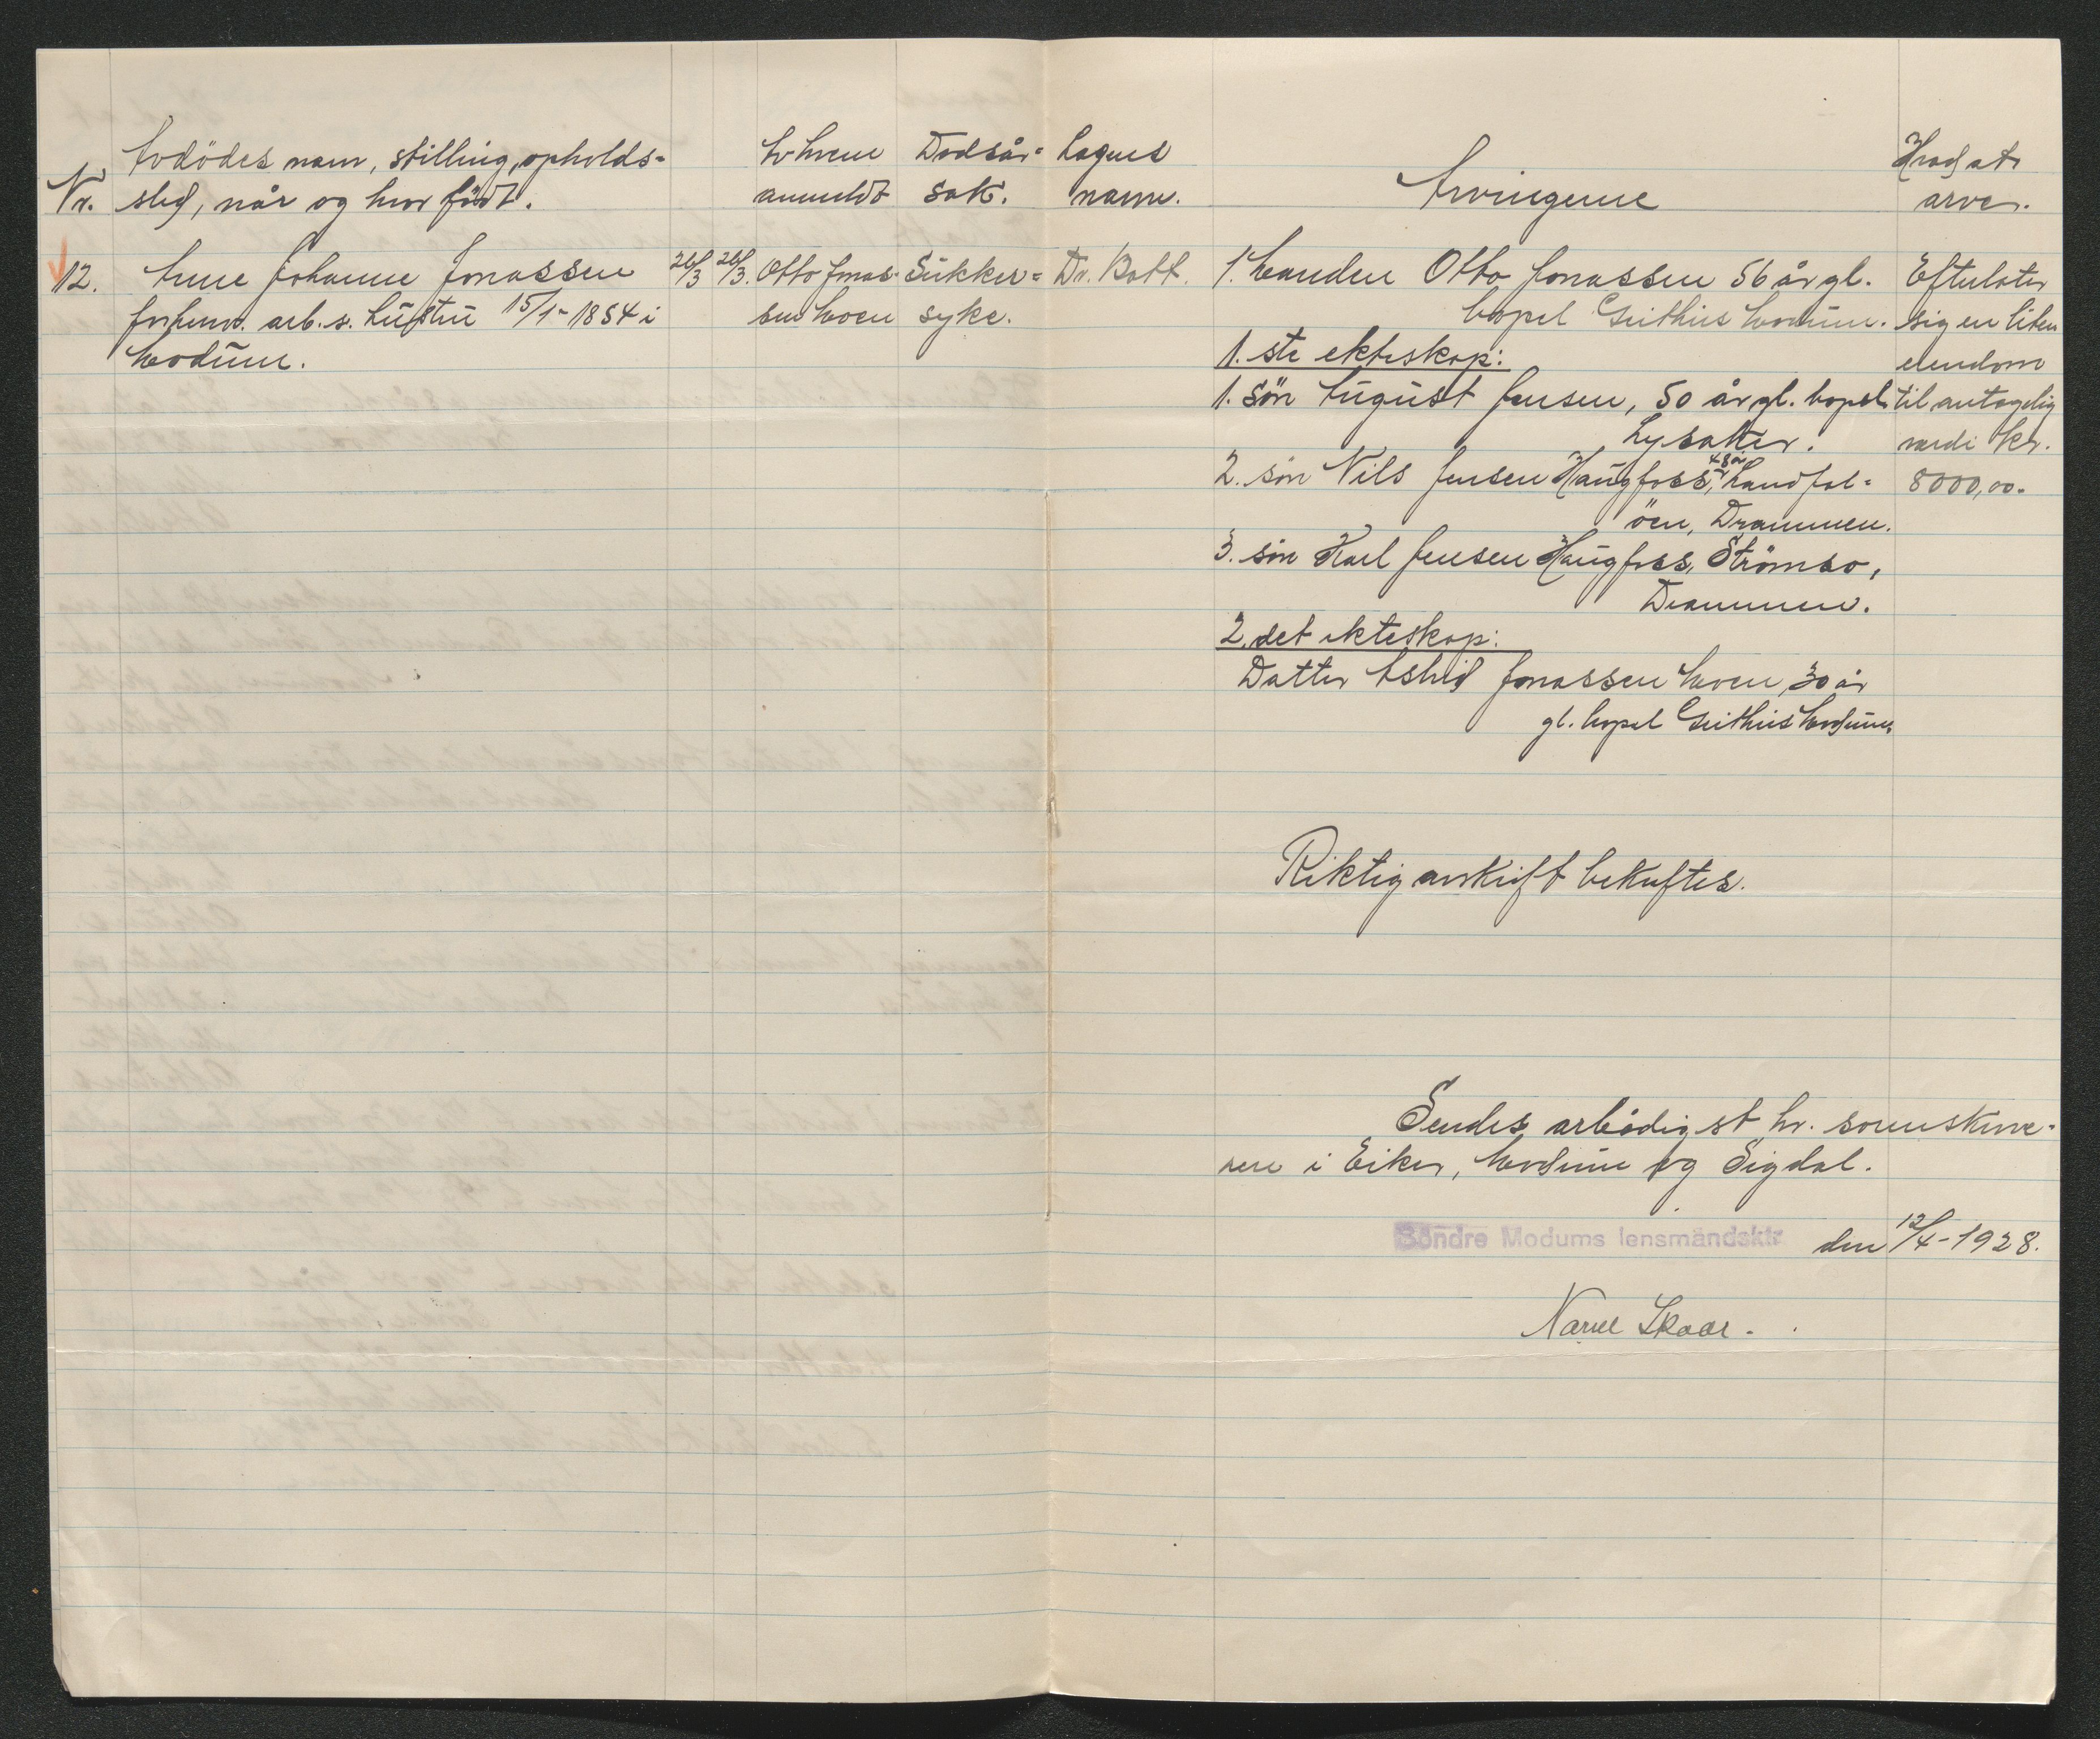 Nr.
Avdödes navn, stilling, opholds-
sted, når og hvor födt.
Av hvem
anmeldt
Dødsår-
sak.
Lægens
navn.
Arvingerne
Hvad at
arve.
12.
Anne Johanne Jonassen
forhenv. arb.s. hustru 15/1-1854 i
Modum.
26/3
26/3.
Otto Jonas-
sen Moen
Sukker-
syke.
Dr. Bott.
1. Manden Otto Jonassen 56 år gl.
bopel Geithus Modum.
1.ste ekteskap:
1. sön August Jensen, 50 år gl. bopel
Lysaker.
2. sön Nils Jensen Haugfoss, 48 år, Landfal-
öen, Drammen.
3. sön Karl Jensen Haugfoss, Strömsø,
Drammen.
2.det ekteskap:
Datter Astrid Jonassen Moen, 30 år
gl. bopel Geithus Modum.
Efterlater
sig en liten
eiendom
til antagelig
verdi kr.
8000,00.
Riktig avskrift bekreftes.
Sendes ærbødigst hr. sorenskrive-
ren i Eiker, Modum og Sigdal.
Söndre Modums lensmandsktr.
den 12/4-1928.
Skaar.